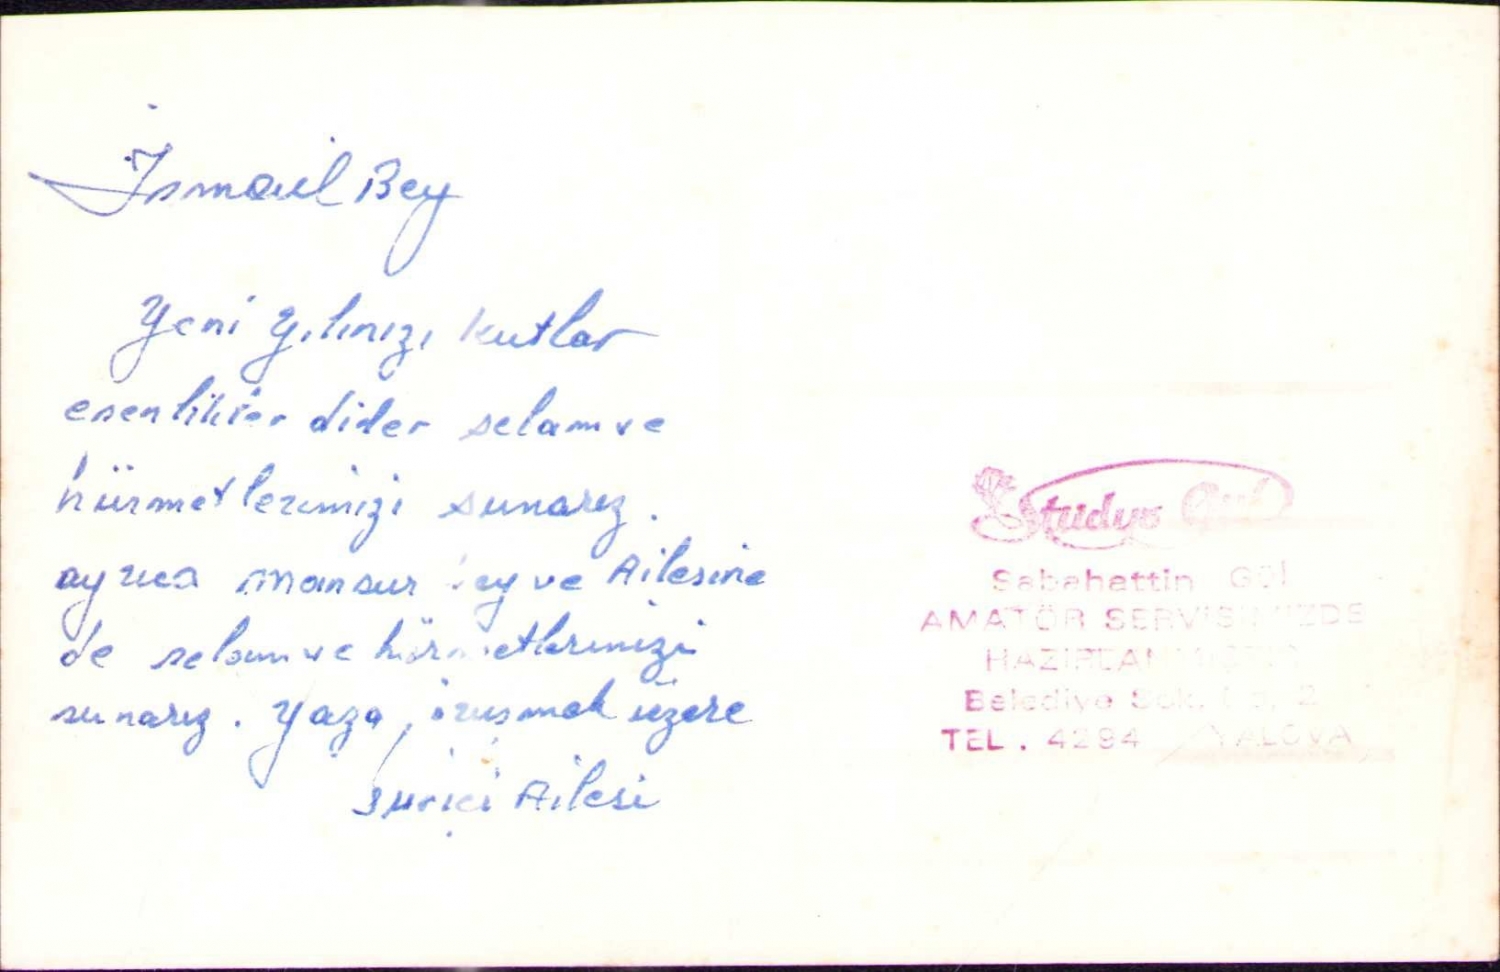 İsmail Bey
Yeni Yılınızı kutlar
esenlikler diler selam ve
hürmetlerimizi sunarız.
ayrıca mansur bey ve Ailesine
de selam ve hürmetlerimizi
sunarız. Yaza görüşmek üzere
Ailesi
Stüdyo Gül
Sabahettin Gül
AMATÖR SERVİSİMİZDE
HAZIRLANMIŞTIR
Belediye Sok. No. 2
TEL. 4294 YALOVA